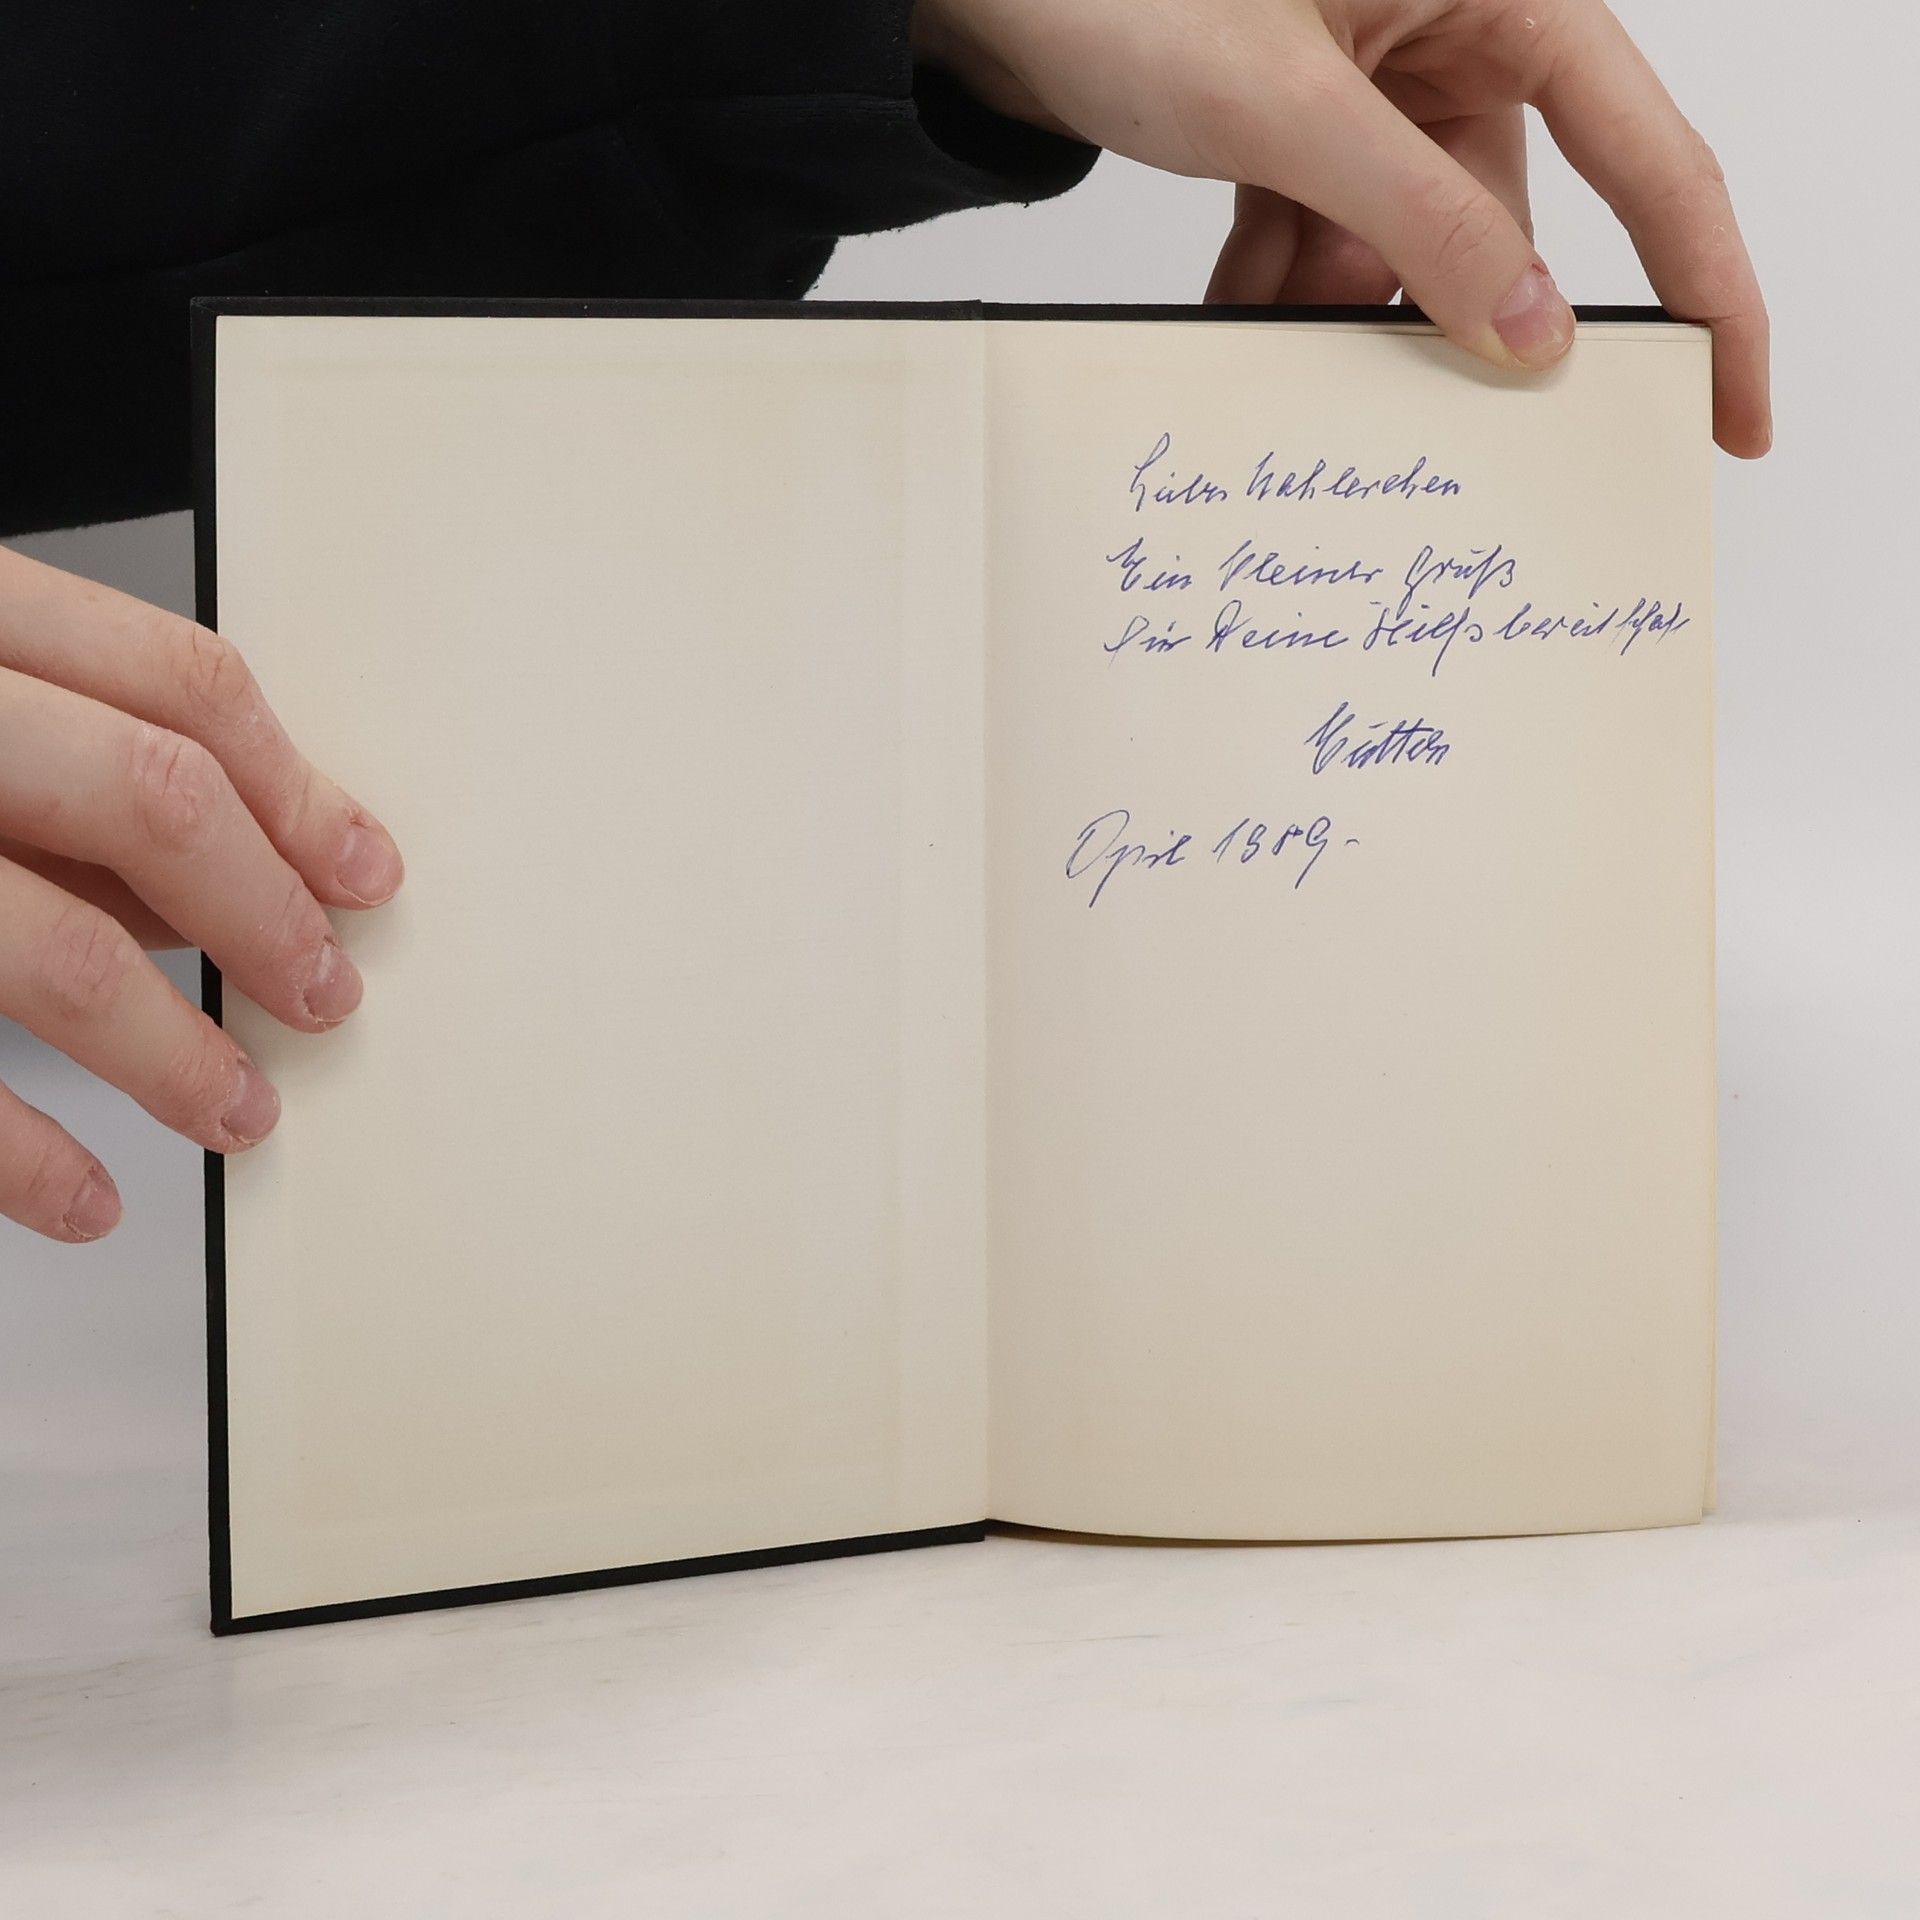 Liebes
Ein kleiner Gruß
für Deine Hilfsbereitschaft
April 1989.-